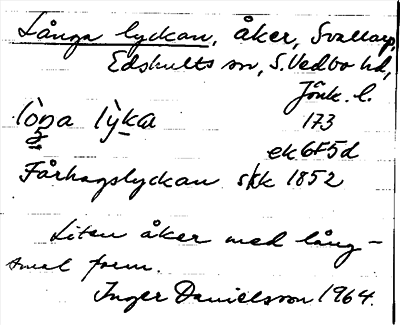 Långa lyckan, åker, Svallarp,
Edshults sn, S. Vedbo hd,
Jönk. l.
173
ek 6F5d
Fårhagslyckan skk 1852
Liten åker med lång-
smal form.
Inger Danielsson 1964.